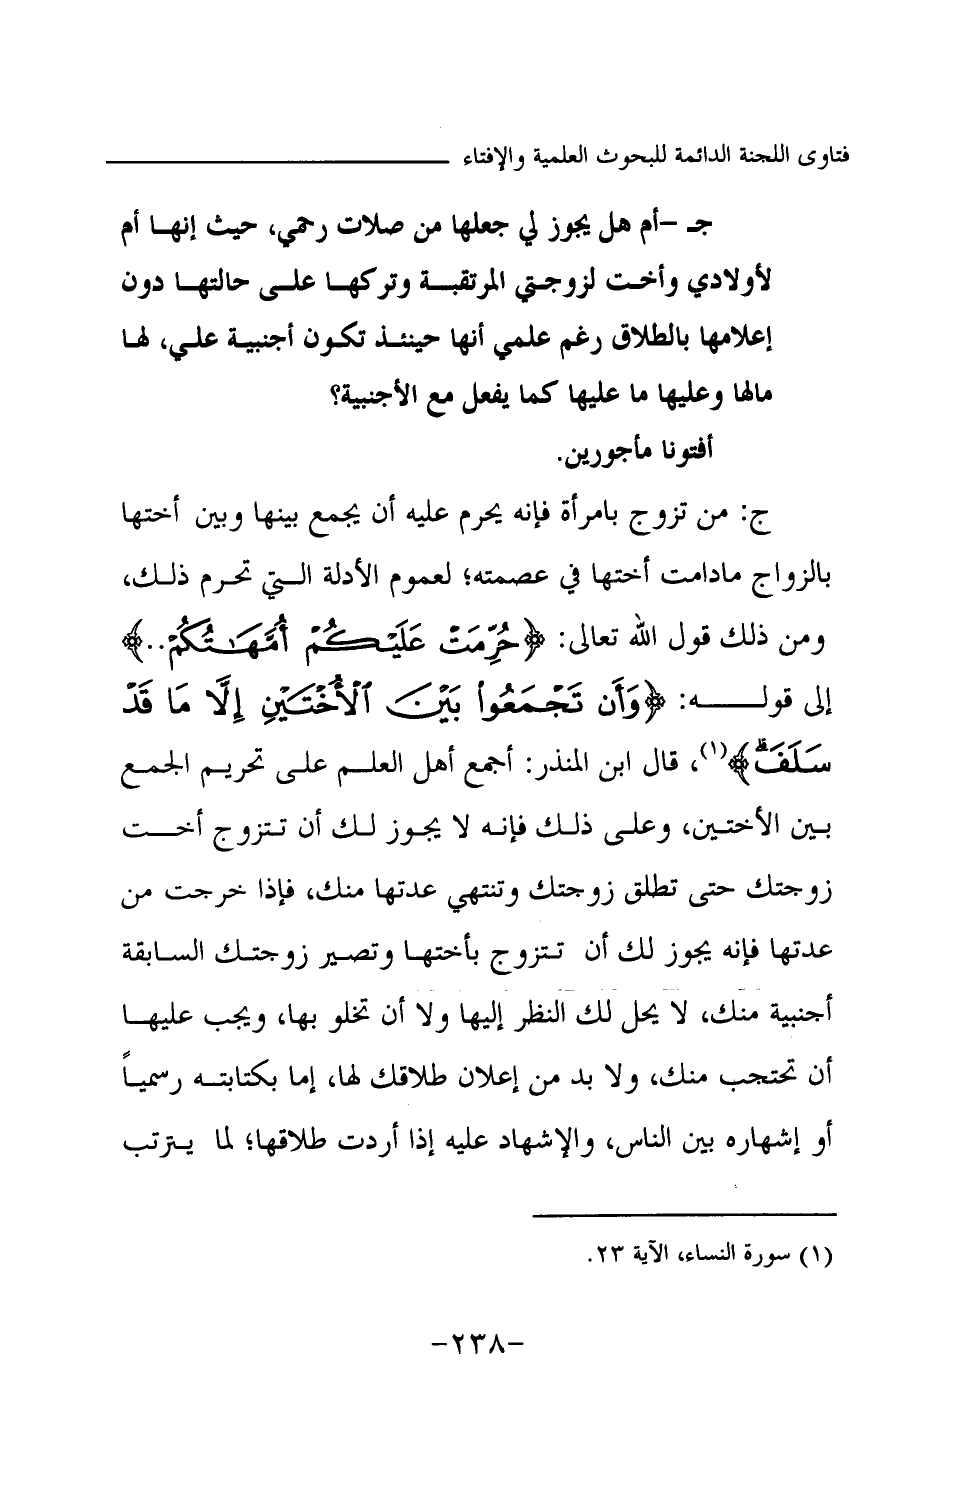 فتاوى اللجنة الدائمة للبحوث العلمية والإفتاء
جـ -أم هل يجوز لي جعلها من صلات رحمي، حيث إنها أم
لأولادي وأخت لزوجتي المرتقبة وتركها على حالتها دون
إعلامها بالطلاق رغم علمي أنها حينئذ تكون أجنبية علي، لها
مالها وعليها ما عليها كما يفعل مع الأجنبية؟
أفتونا مأجورين.
ج: من تزوج بامرأة فإنه يحرم عليه أن يجمع بينها وبين أختها
بالزواج مادامت أختها في عصمته؛ لعموم الأدلة التي تحرم ذلك،
ومن ذلك قول الله تعالى: ﴿حُرِّمَتْ عَلَيْكُمْ أُمَّهَٰتُكُمْ..﴾
إلى قوله: ﴿وَأَن تَجْمَعُوا بَيْنَ ٱلْأُخْتَيْنِ إِلَّا مَا قَدْ
سَلَفَ ۗ﴾(١)، قال ابن المنذر: أجمع أهل العلم على تحريم الجمع
بين الأختين، وعلى ذلك فإنه لا يجوز لك أن تتزوج أخت
زوجتك حتى تطلق زوجتك وتنتهي عدتها منك، فإذا خرجت من
عدتها فإنه يجوز لك أن تتزوج بأختها وتصير زوجتك السابقة
أجنبية منك، لا يحل لك النظر إليها ولا أن تخلو بها، ويجب عليها
أن تحتجب منك، ولا بد من إعلان طلاقك لها، إما بكتابته رسمياً
أو إشهاره بين الناس، والإشهاد عليه إذا أردت طلاقها؛ لما يترتب
(١) سورة النساء، الآية ٢٣.
-٢٣٨-